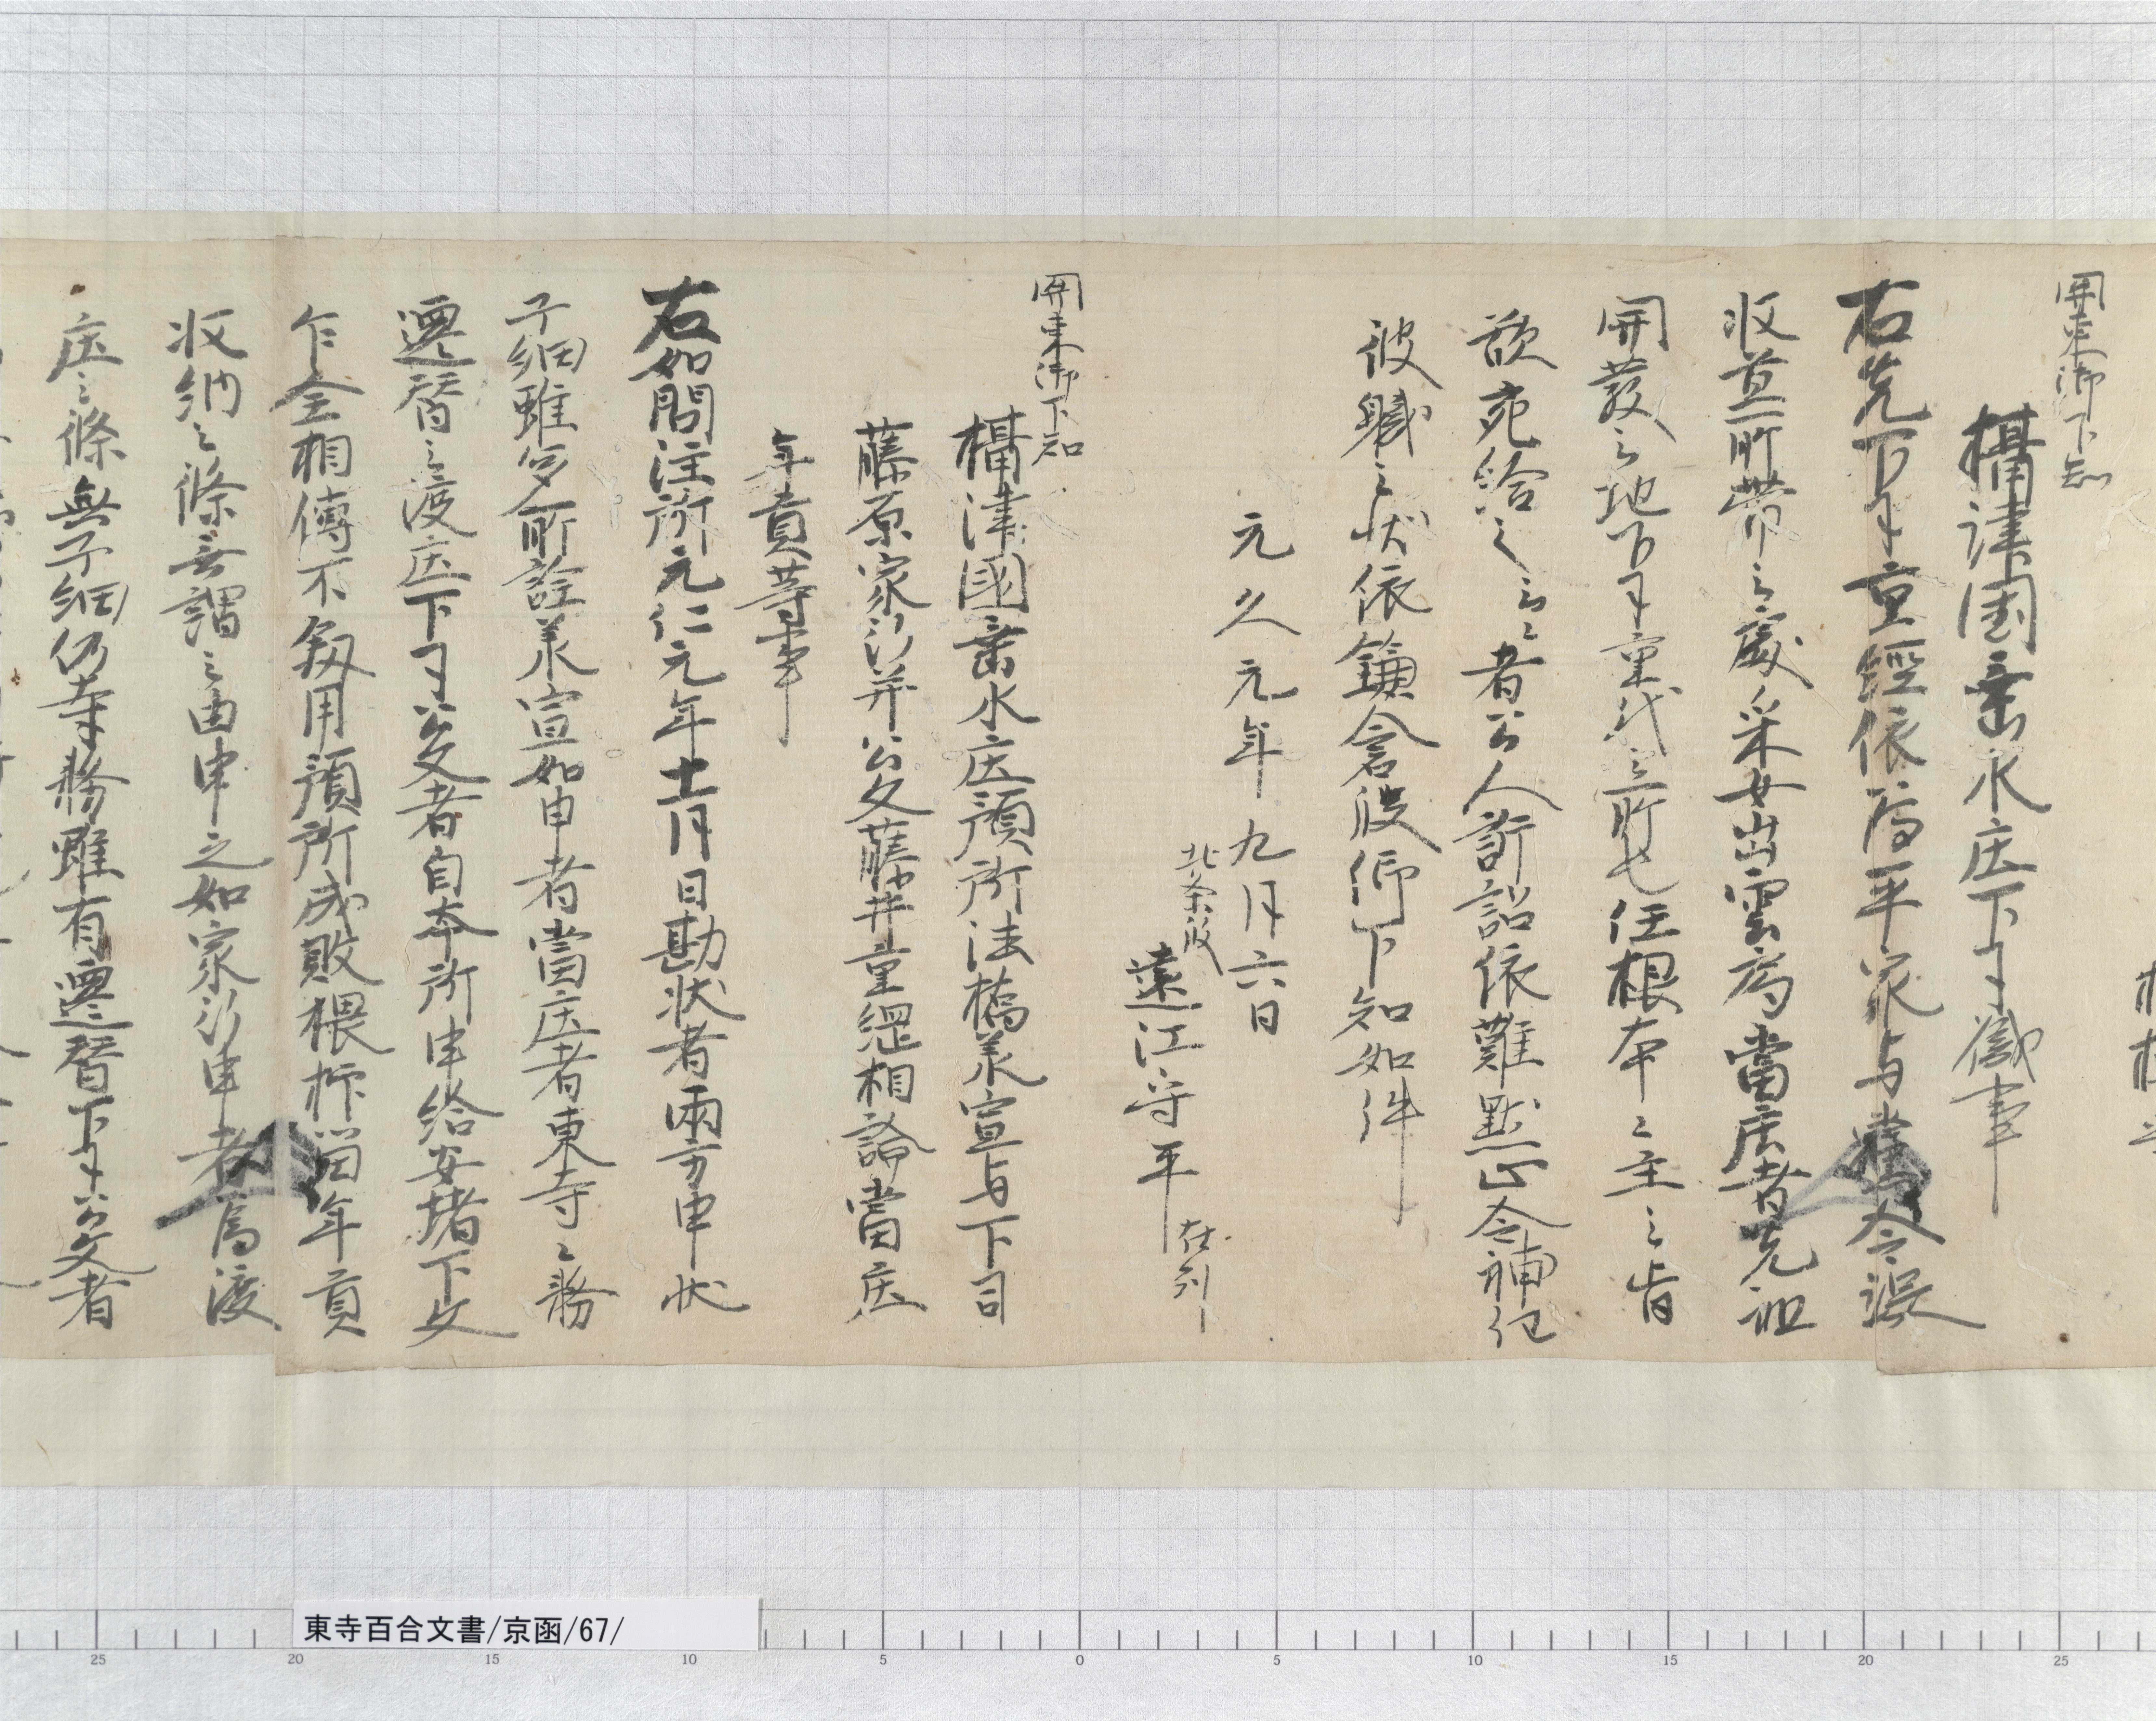 関東御下知
攝津国垂水庄下司職事
右先下司重經依為平家与黨令没
収其所帯之處采女出雲局當庄者先祖
開發之地下司重代之所也任根本之主之旨
欲宛給之云々者公人訴詔依難黙止令補任
彼職之状依鎌倉殿仰下知如件
元久元年九月六日
北条殿
遠江守平 在判
関東御下知
攝津國垂水庄預所法橋承宣与下司
藤原家行并公文藤井重綱相論當庄
年貢等事
右如問注所元仁元年十一月日勘状者両方申状
子細雖多所詮承宣如申者當庄者東寺々務
遷替之渡庄下司公文者自本所申給安堵下文
乍全相傳不叙用預所成敗猥抑留年貢
収納之條無謂之由申之如家行申者為渡
庄之條無子細仍寺務雖有遷替下司公文者
東寺百合文書/京函/67/